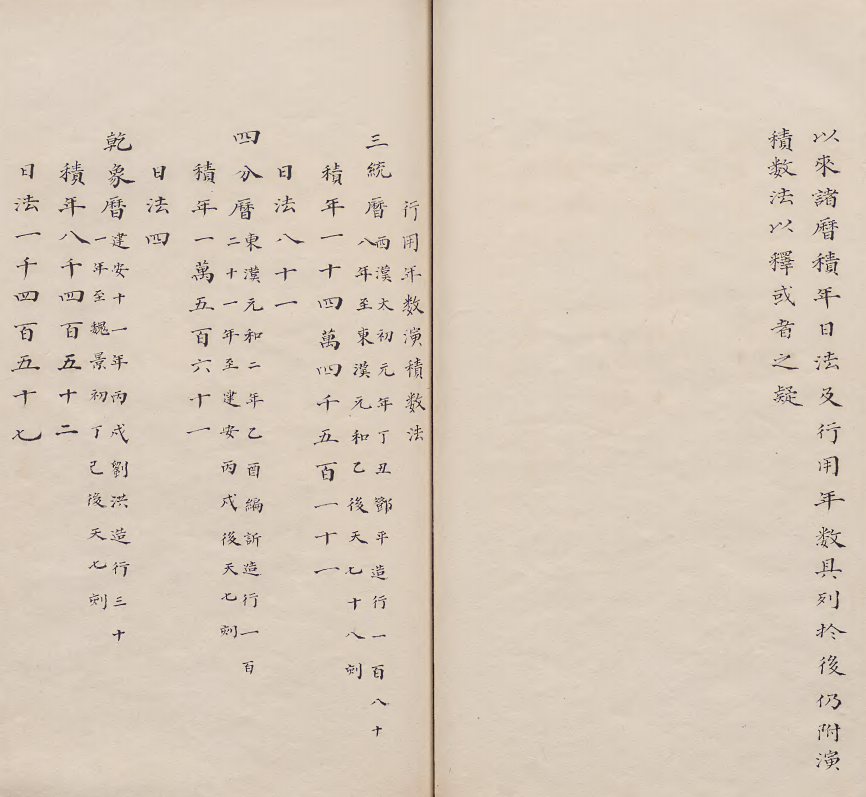 以來諸曆積年日法及行用年數具列於後仍附演
積數法以釋或者之疑
行用年数演積数法
三統曆西漢太初元年丁丑鄧平造行一百八十
八年至東漢元和乙後天七十八刻
積年一十四萬四千五百一十一
日法八十一
四分曆東漢元和二年乙酉編訢造行一百
二十一年至建安丙戍後天七刻
積年一萬五百六十一
日法四
乾象曆建安十一年丙戍劉洪造行三十
一年至魏景初丁已後天七刻
積年八千四百五十二
日法一千四百五十七